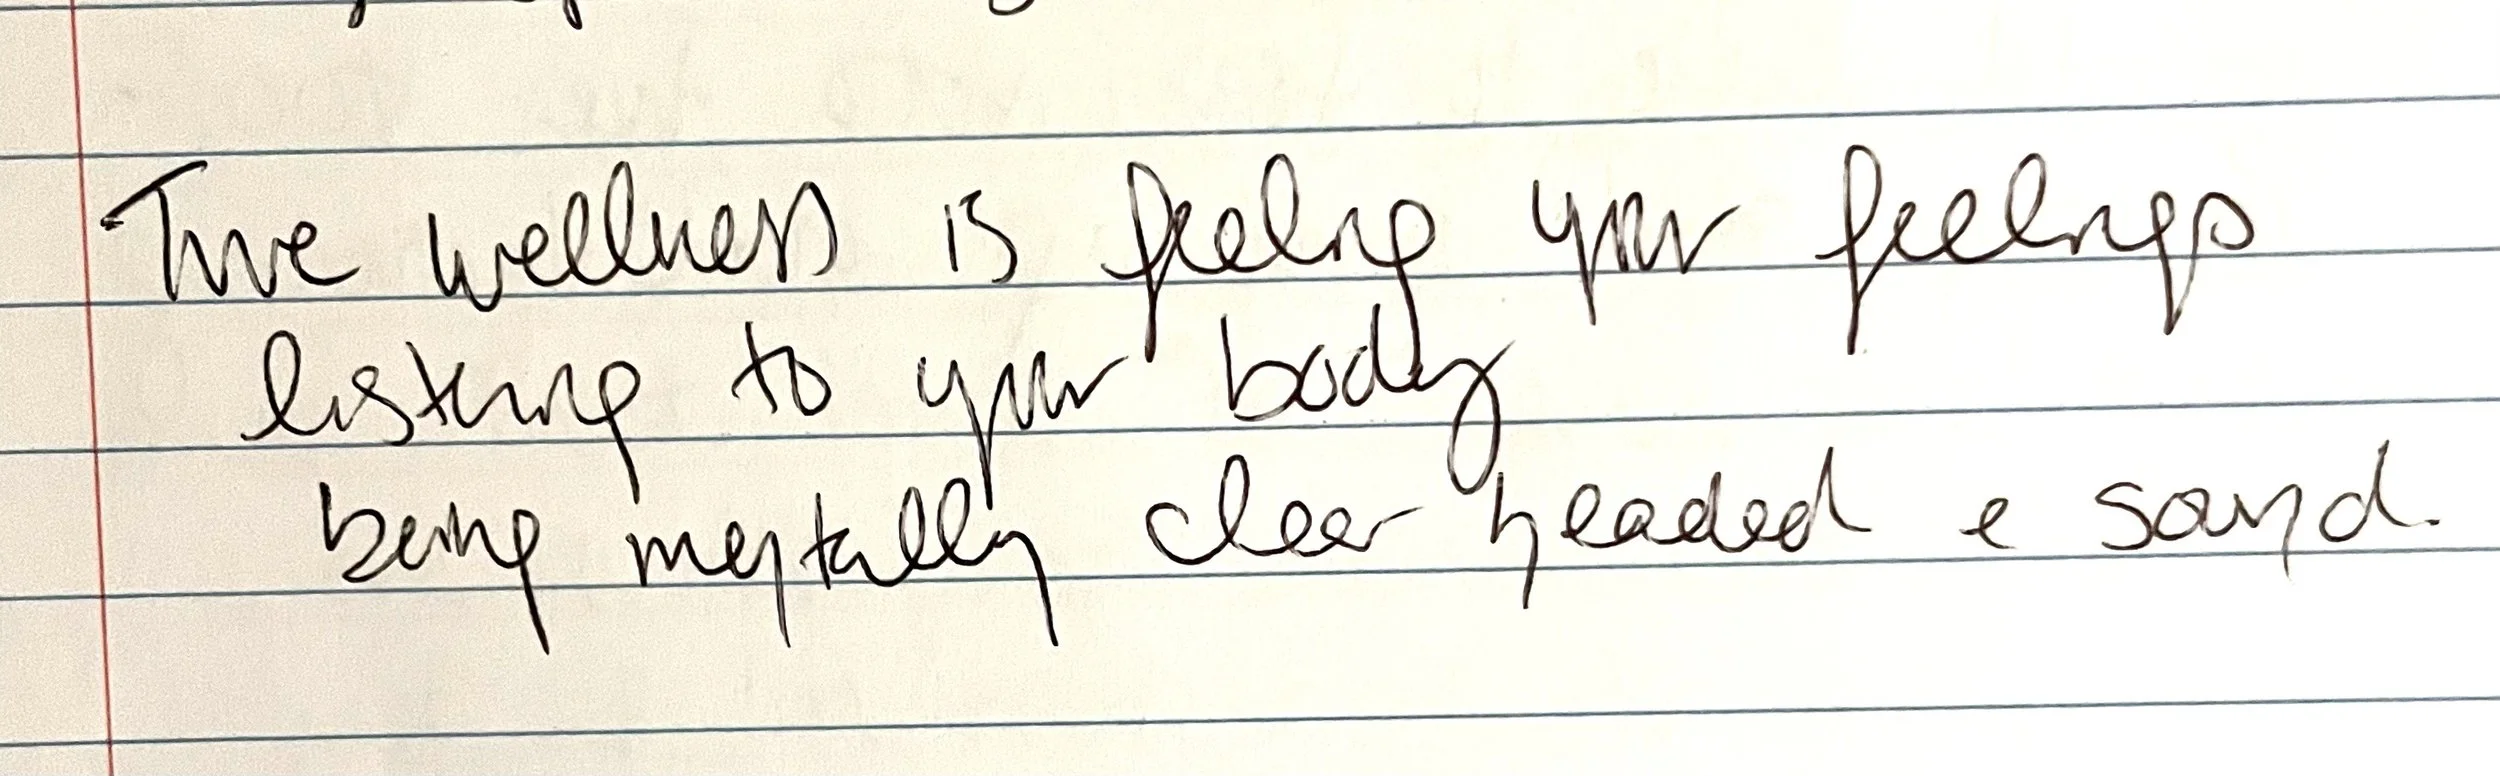 - True wellness is feeling your feelings
listening to your body
being mentally clear headed & sound.